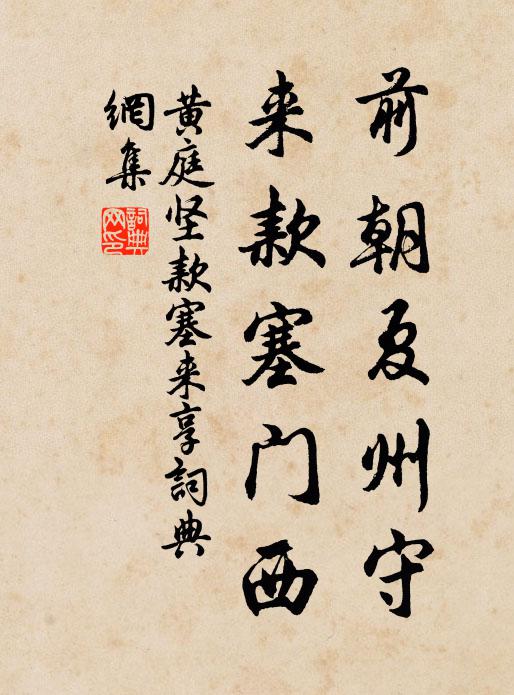 前朝夏州守
来款塞门西
黄庭坚款塞来享詞典
網集
詞典网印